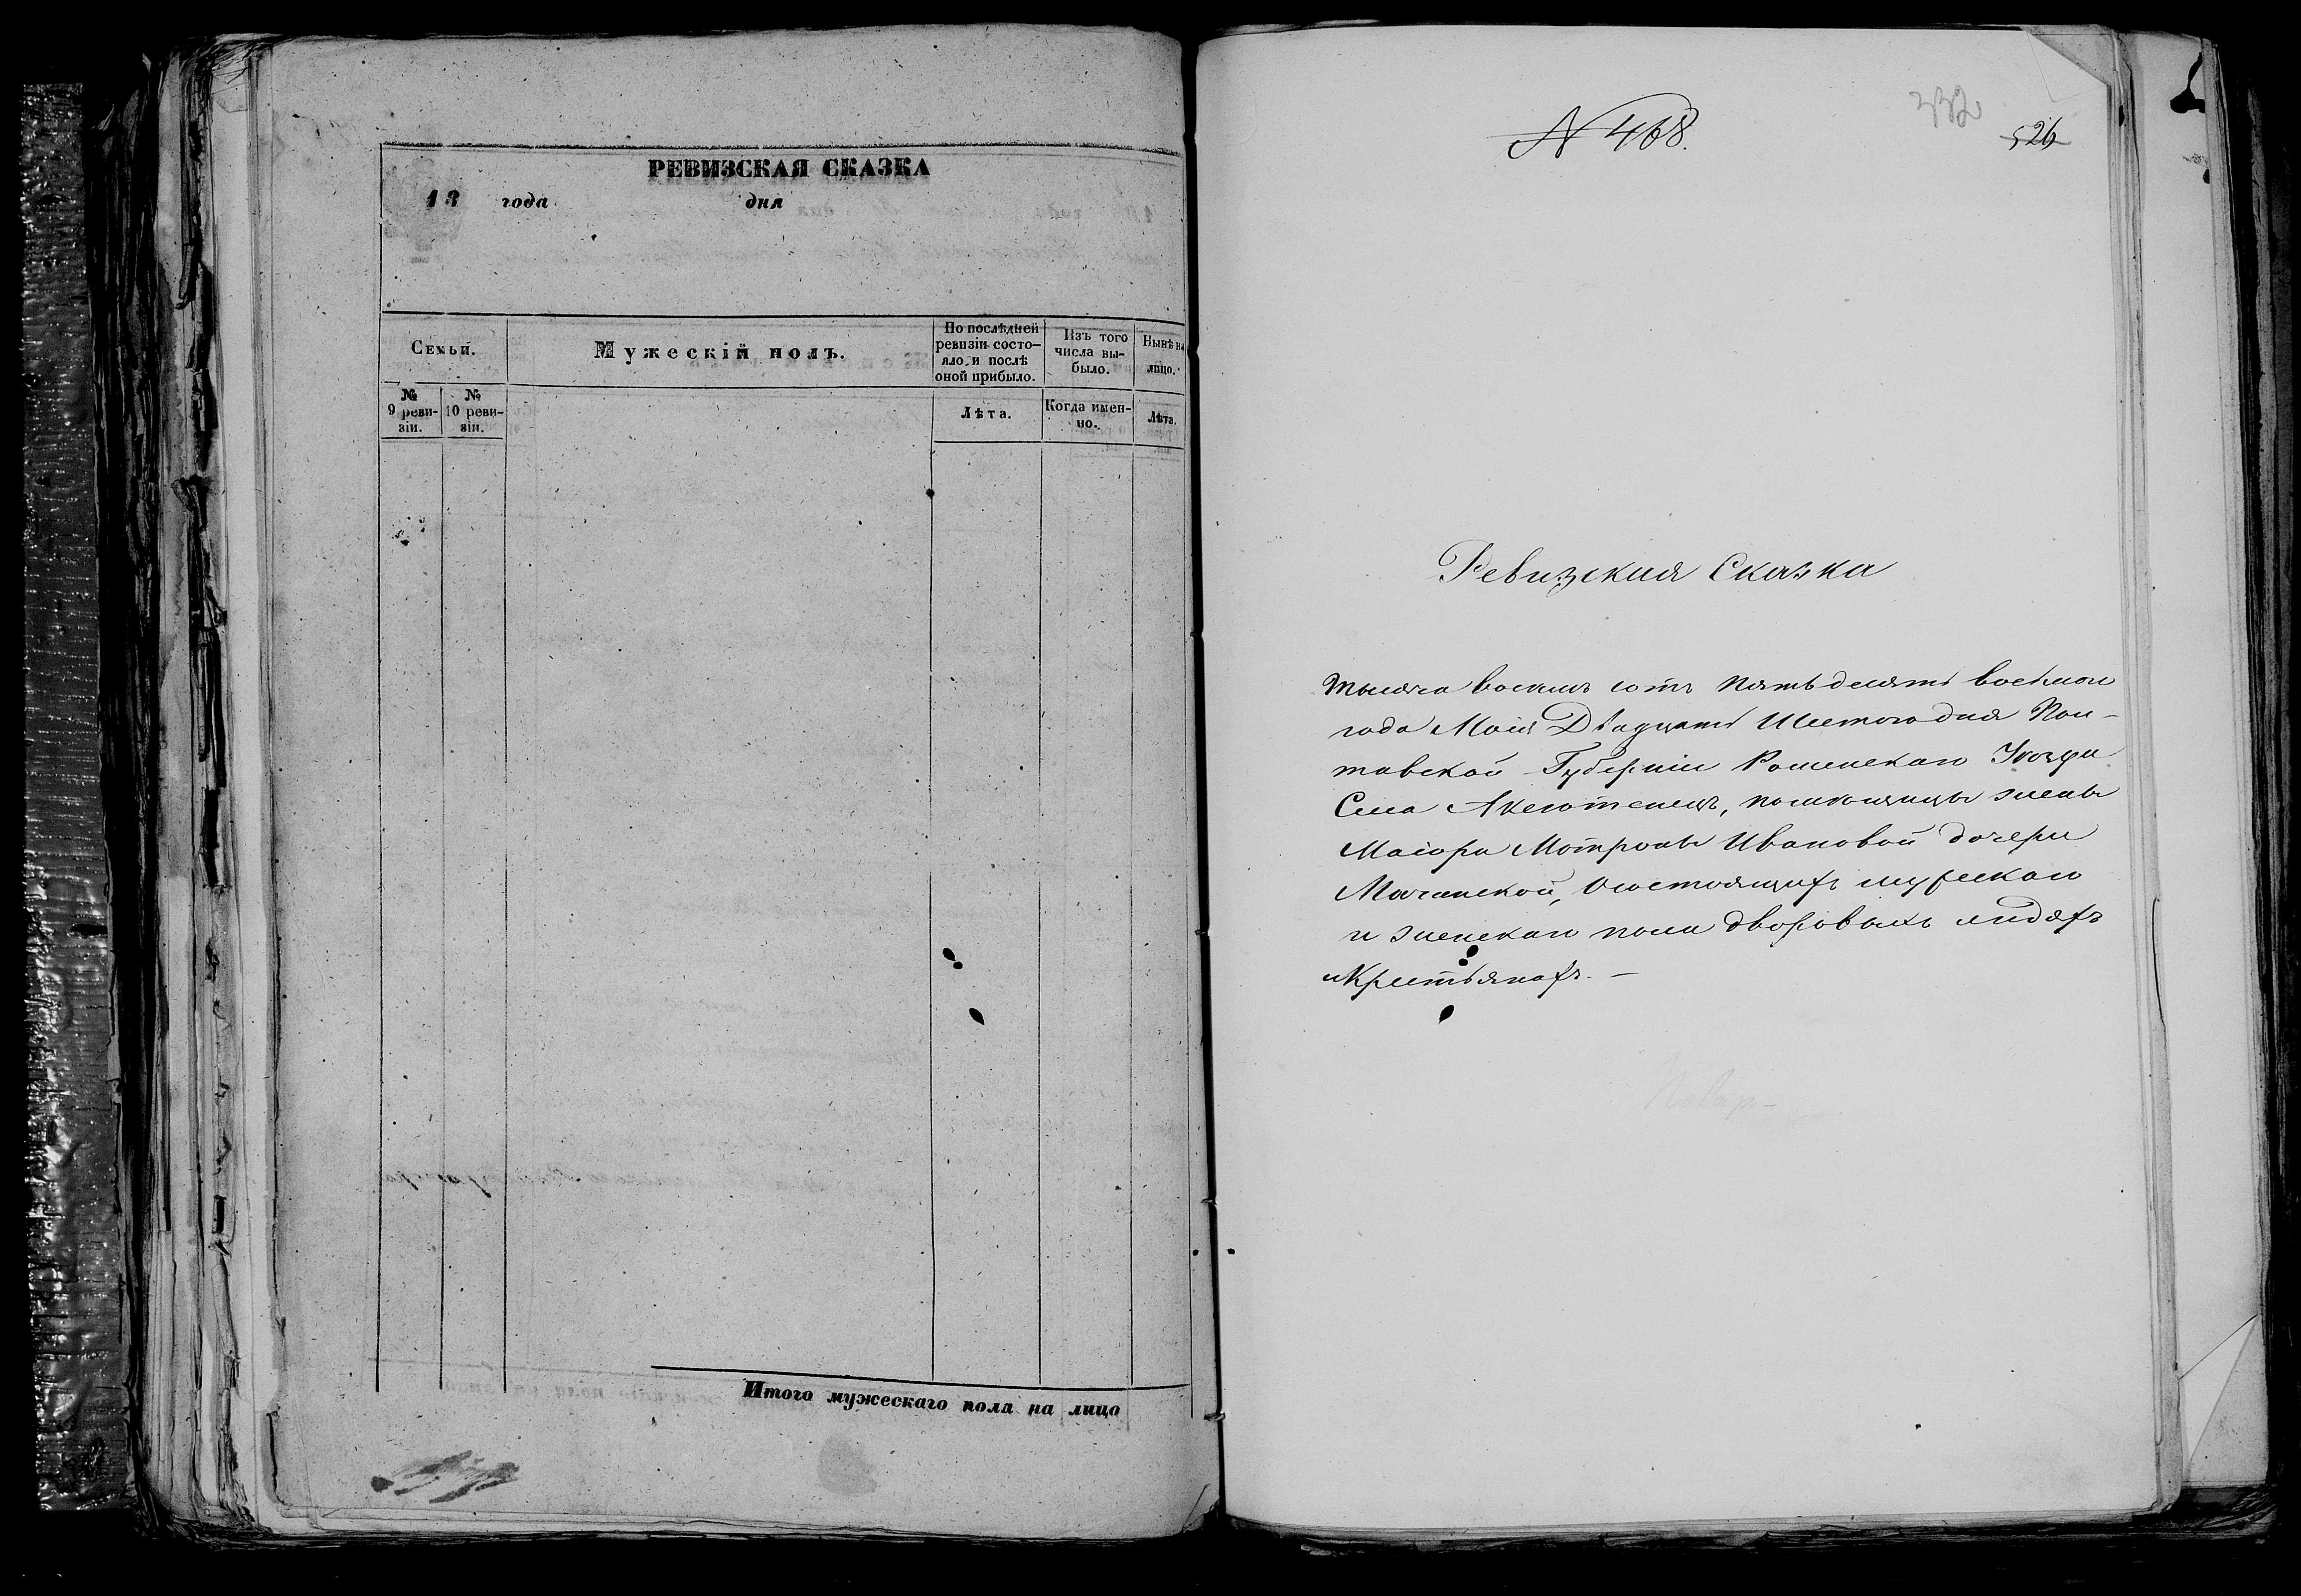 РЕВИЗСКАЯ СКАЗКА
18 года дня
Семьи.
Мужескій полъ.
По послѣдней
ревизіи состо-
яло и послѣ
оной прибыло.
Изъ того
числа вы-
было.
Нынѣ на
лицо.
№
9 реви-
зіи.
№
10 реви-
зіи.
Лѣта.
Когда имен-
но.
Лѣта.
Итого мужескаго пола на лицо
N 468.
332
526
Ревизская Сказка
Тысяча восемь сотъ пятьдесятъ восьмого
года Маія Двадцать Шестого дня Пол-
тавской Губерніи Роменскаго Уѣзда
Села Аксютенецъ, помѣщицы жены
Маіора Мотроны Ивановой дочери
Мачинской, О состоящихъ мужескаго
и женскаго пола дворовыхъ людяхъ
и Крестьянахъ. —